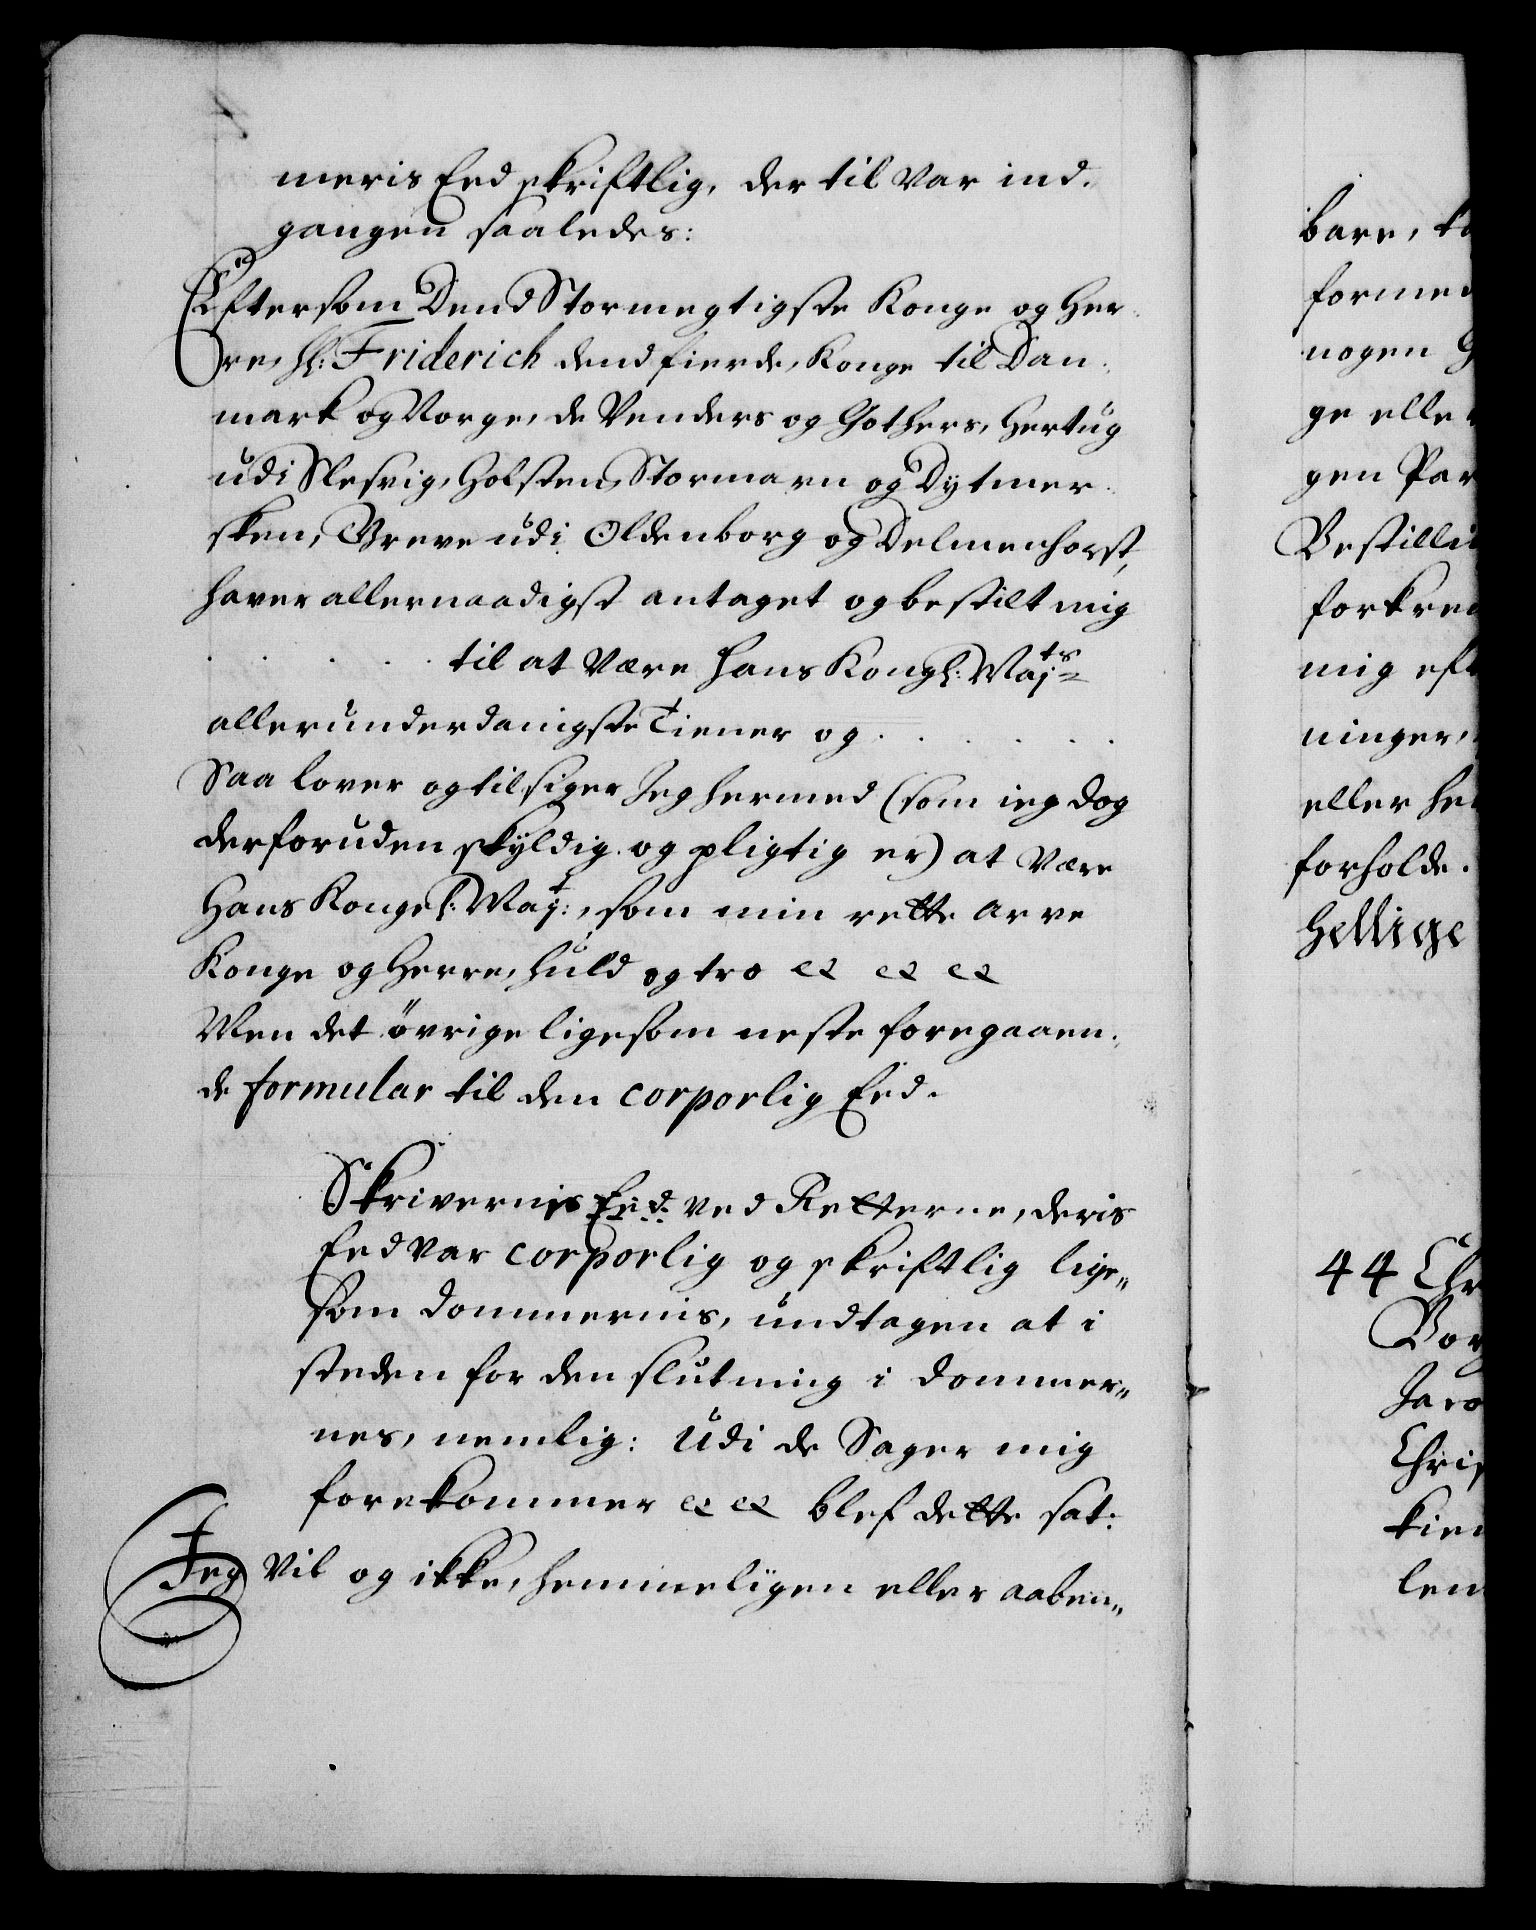 meris Eed skriftlig, der til var ind-
gangen saaledes:
Eftersom Dend Stormegtigste Konge og Her-
re, H: Friderich dend fierde, Konge til Dan-
mark og Norge, de Venders og Gothers, Hertug
udi Slesvig, Holsten, Stormarn og Dytmer-
sken, Greve udi Oldenborg og Delmenhorst,
haver allernaadigst antaget og bestilt mig
. . . . . til at være Hans Kongl: Maj:ts
allerunderdanigste Tiener og . . . . . .
Saa lover og tilsiger Jeg hermed (som ieg dog
derforuden skyldig og pligtig er) at være
Hans Kongel: Maj:t, som min rette arve
Konge og Herre, huld og tro &c &c &c
Men det övrige ligesom neste foregaaen-
de formular til den corporlig Eed.
Skrivernis Eed ved Retterne, deris
Eed var corporlig og skriftlig lige-
som dommernis, undtagen at i
steden for den slutning i dommer-
nes, nemlig: Udi de Sager mig
forekommer &c &c blef dette sat:
Jeg vil og ikke, hemmeligen eller aaben-
bare, ta
formed
nogen G
ge eller
gen Par
Bestilli
forkren
mig eft
ninger,
eller he
forholde.
Hellige
44 Chr
Bor
Jaco
Chris
kien
len